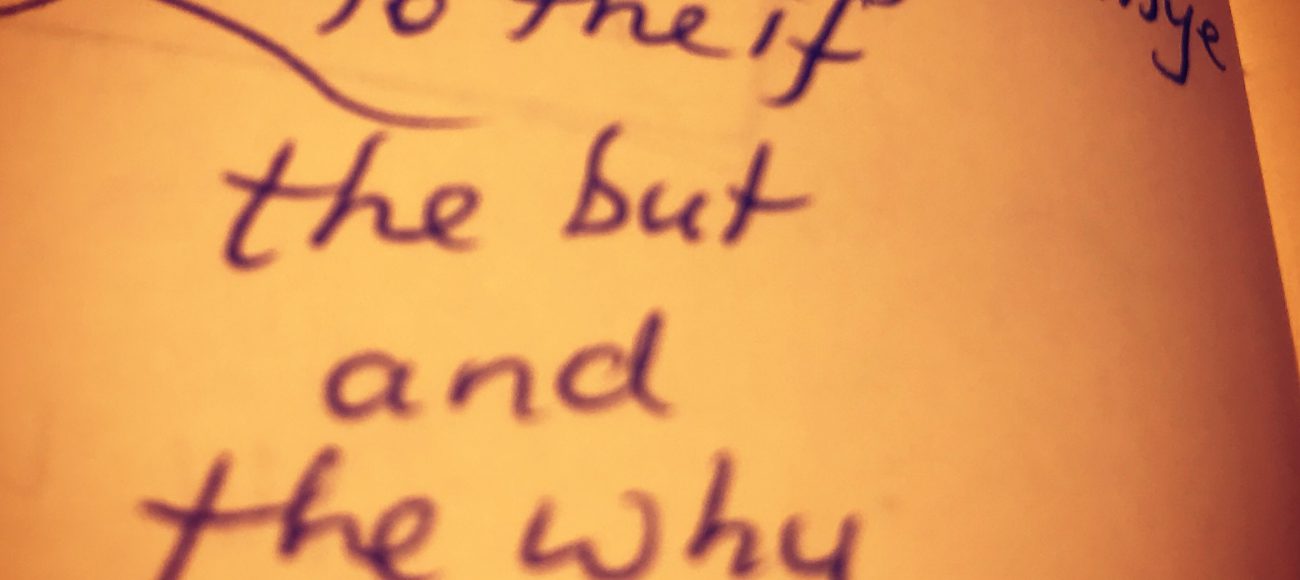 To the if
the but
and
the why